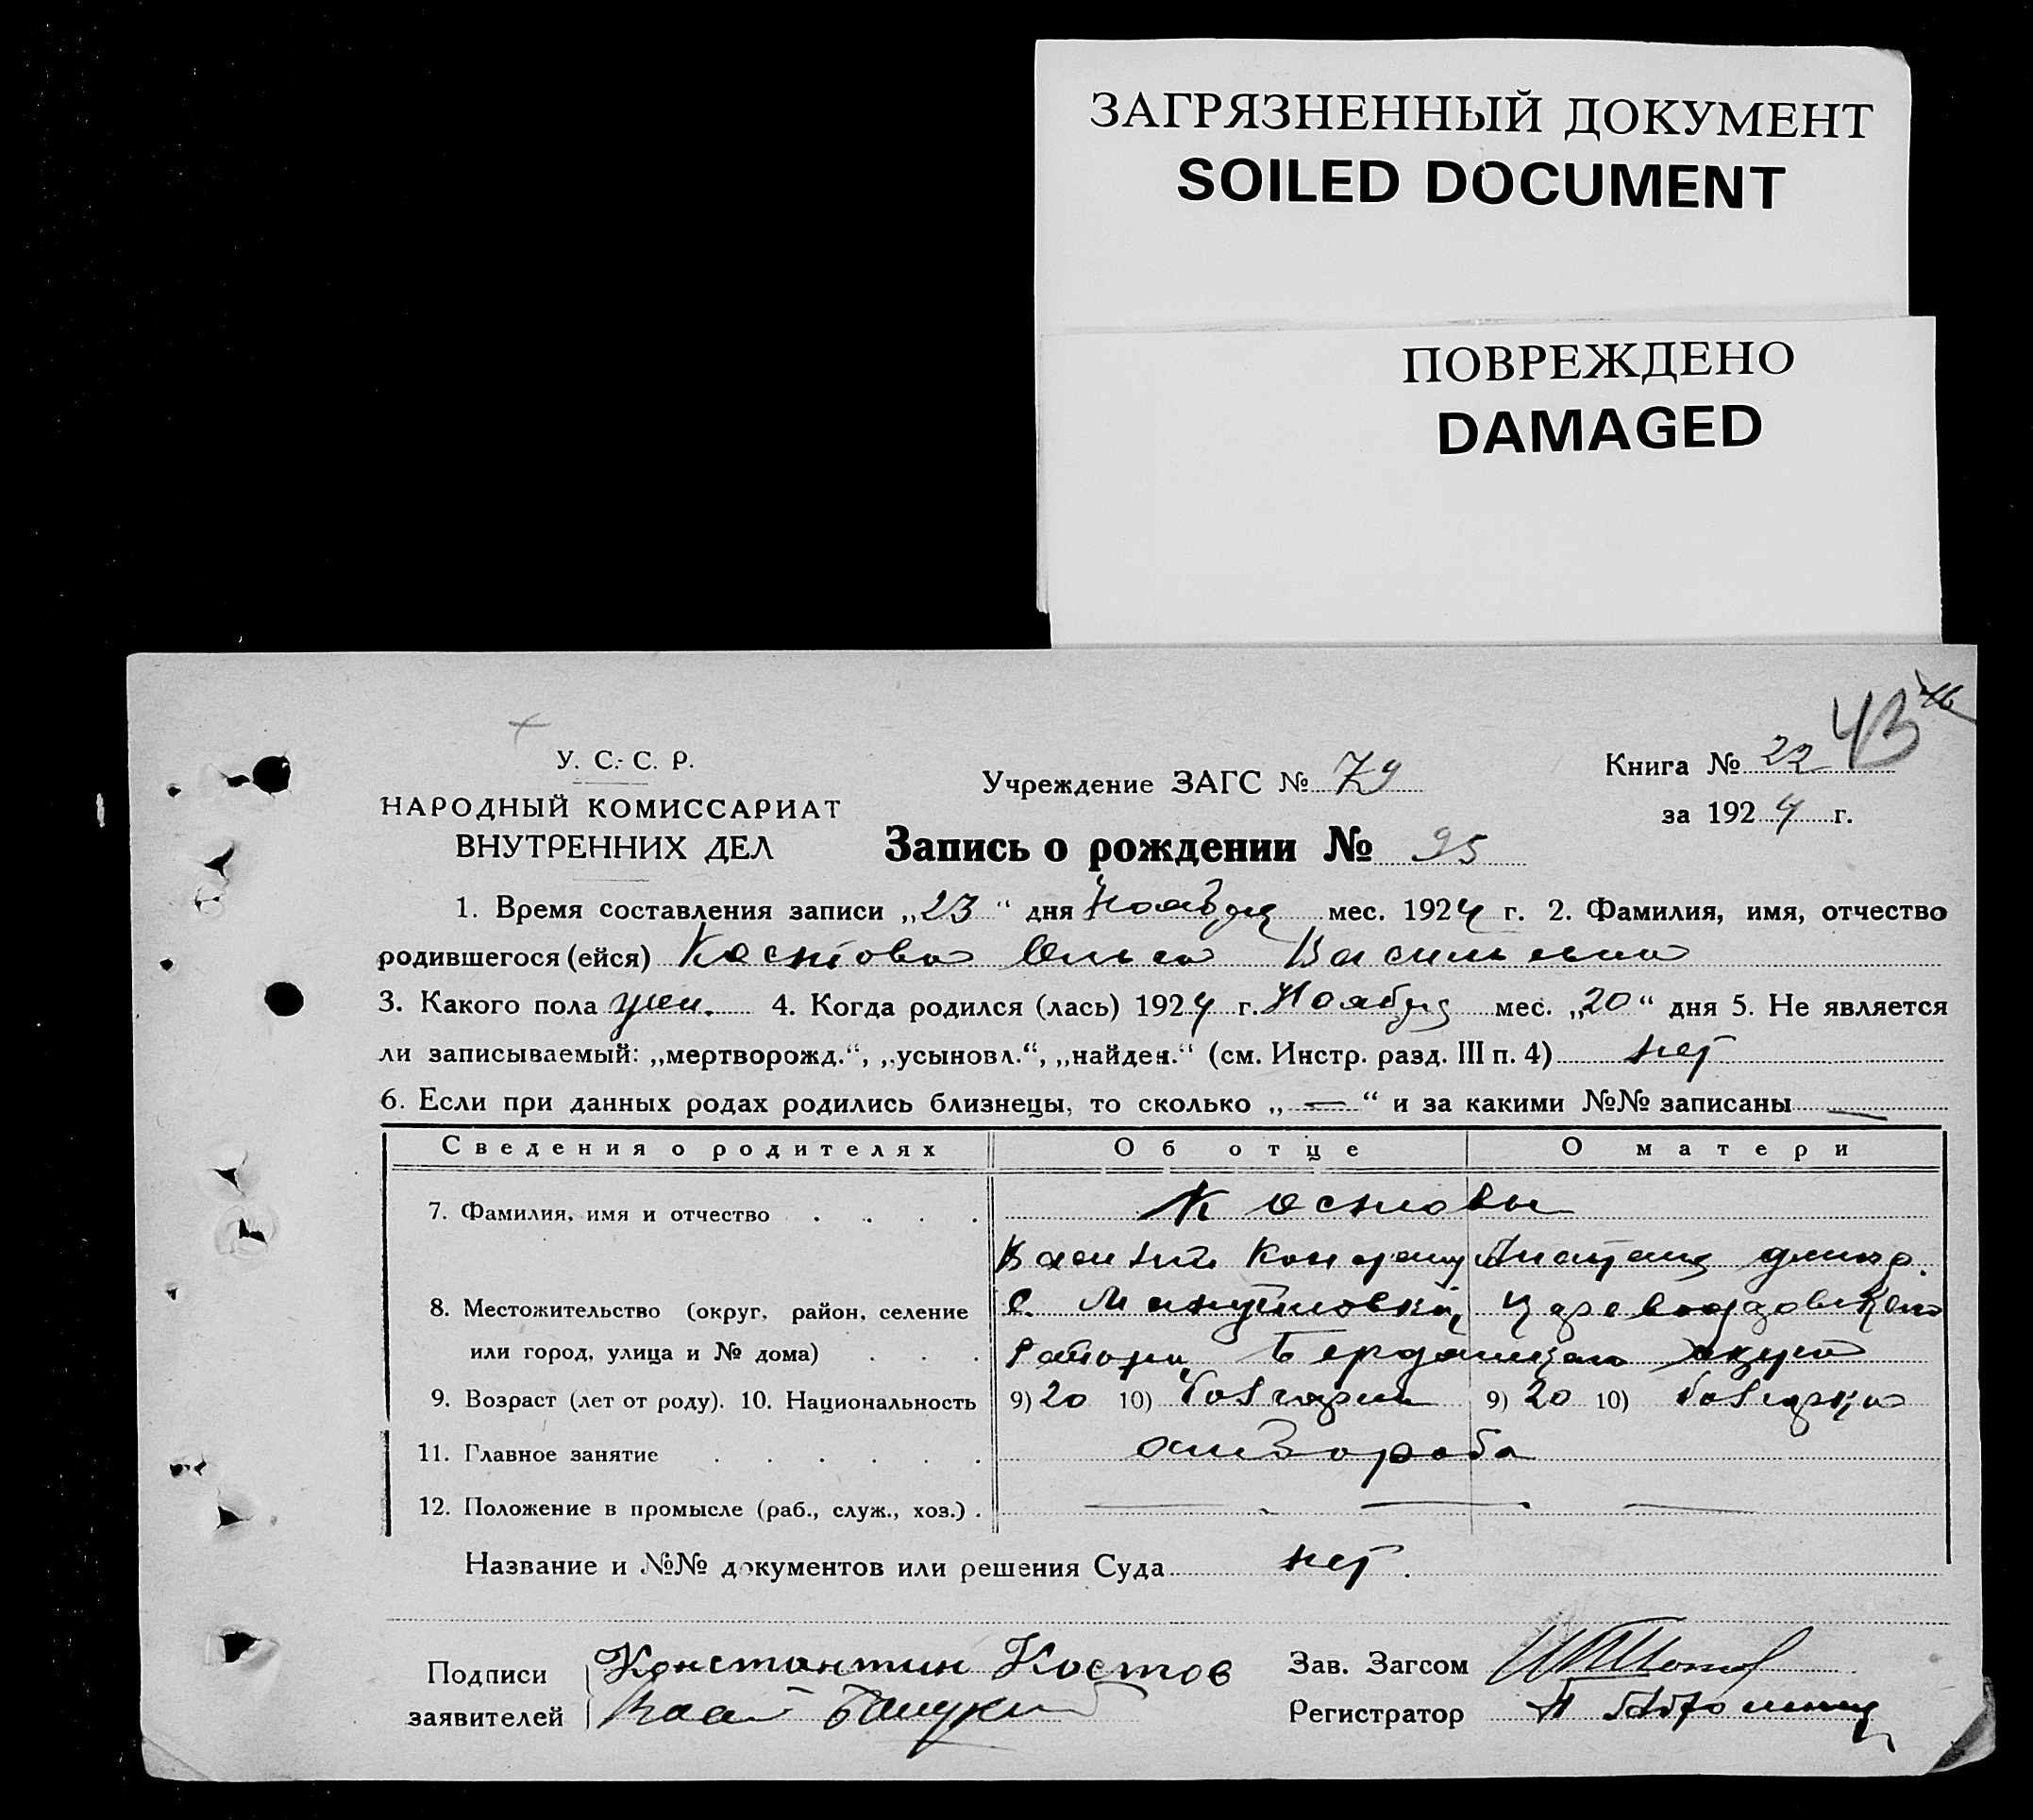 ЗАГРЯЗНЕННЫЙ ДОКУМЕНТ
SOILED DOCUMENT
ПОВРЕЖДЕНО
DAMAGED
43
У. С. С. Р.
НАРОДНЫЙ КОМИССАРИАТ
ВНУТРЕННИХ ДЕЛ
Учреждение ЗАГС № 79
Книга № 22
за 1924 г.
Запись о рождении № 95
1. Время составления записи „23“ дня Ноября мес. 1924 г. 2. Фамилия, имя, отчество
родившегося (ейся) Костова Ольга Васильевна
3. Какого пола жен. 4. Когда родился (лась) 1924 г. Ноября мес. „20“ дня 5. Не является
ли записываемый: „мертворожд.“, „усыновл.“, „найден.“ (см. Инстр. разд. III п. 4) нет
6. Если при данных родах родились близнецы, то сколько „—“ и за какими №№ записаны —
Сведения о родителях Об отце О матери
7. Фамилия, имя и отчество Костовы
Василий
8. Местожительство (округ, район, селение с. Мануйловка, Цареводаровского
или город, улица и № дома) района, Бердянского округа
9. Возраст (лет от роду). 10. Национальность 9) 20 10) болгарин 9) 20 10) болгарка
11. Главное занятие хлебороба
12. Положение в промысле (раб., служ., хоз.) — — —
Название и №№ документов или решения Суда нет.
Подписи Константин Костов
заявителей
Зав. Загсом
Регистратор